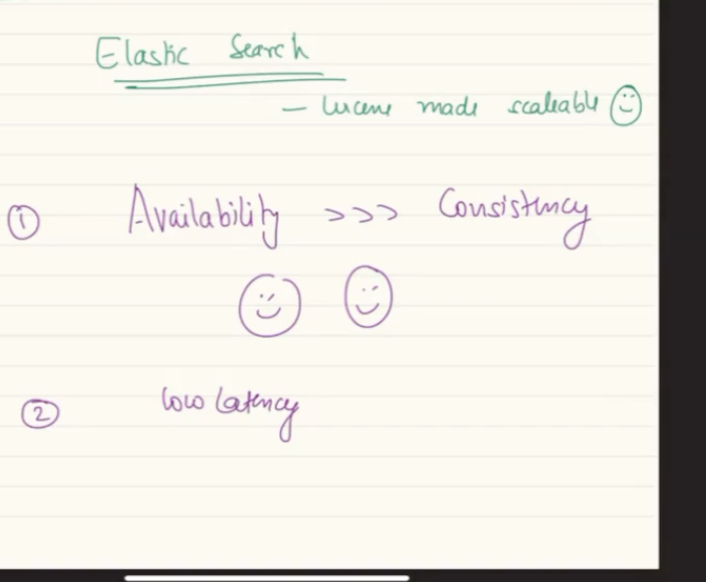 Elastic Search
– lucene made scaleable
① Availability >>> Consistency
② low latency